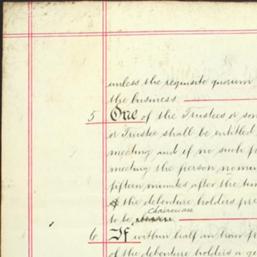 unless the requisite quorum
the business
5 One of the Trustees or som
or Trustee shall be entitled
meeting and if no such p
meeting the person nomin
fifteen minutes after the tim
of the debenture holders pre
chairman
to be
6 If within half an hour f
of the debenture holders a q